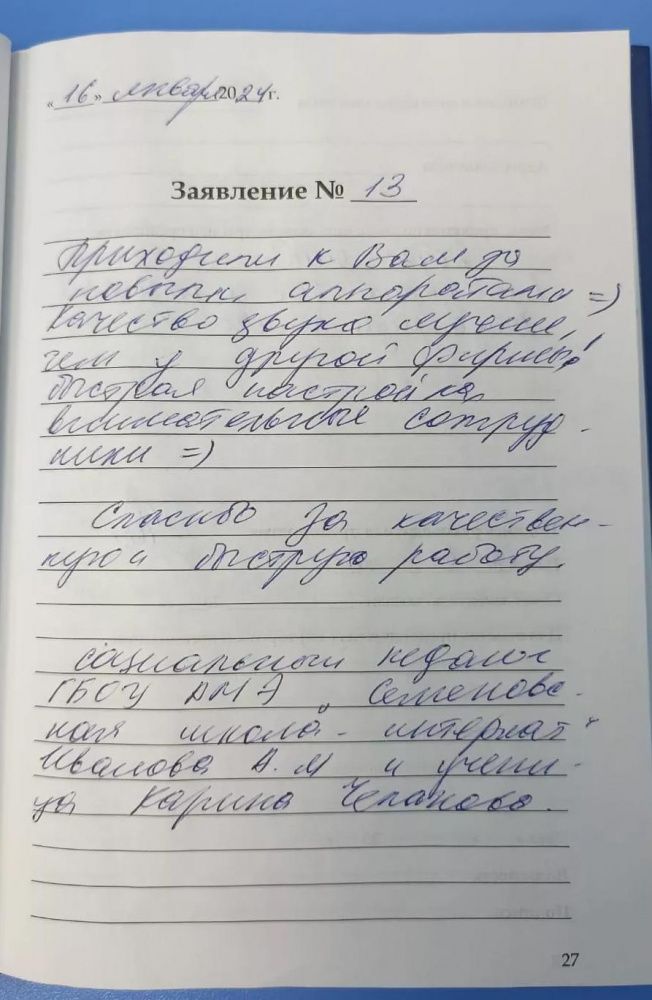 «16» января 2024г.
Заявление № 13
Приходили к Вам за
новыми аппаратами =)
Качество звука лучше,
чем у другой фирмы,
быстрая настройка,
внимательные сотруд-
ники =)
Спасибо за качествен-
ную и быструю работу.
социальный педагог
ГБОУ "Семеновс-
кая школа-интернат"
Иванова А.М и учени-
ца Карина
27